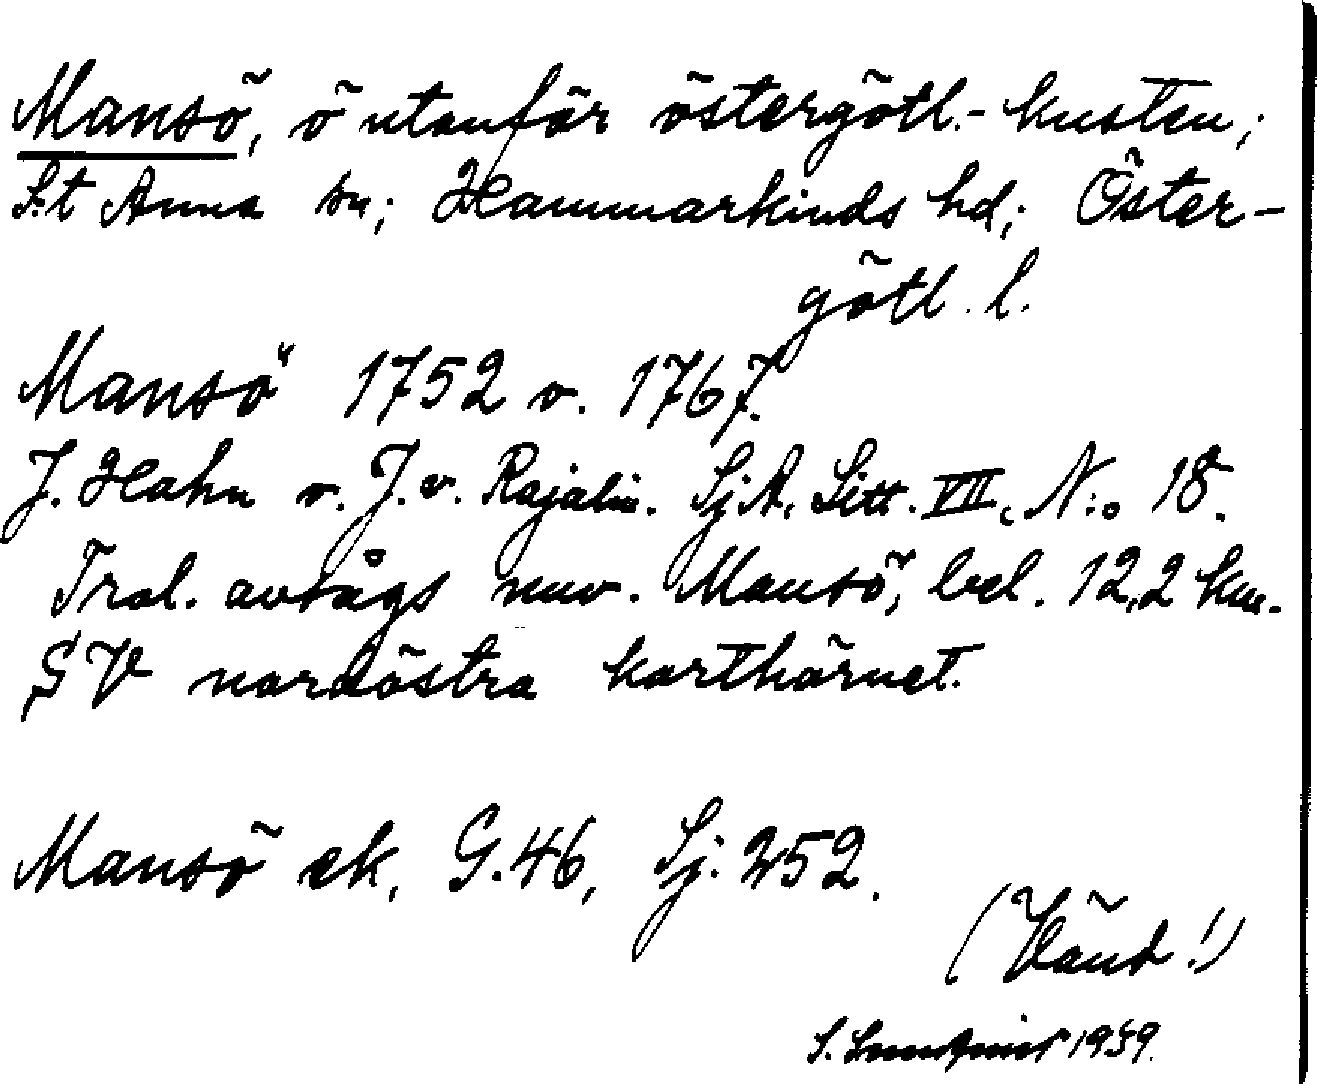 Mansö, ö utanför östergötl.-kusten;
S:t Anna sn; Hammarkinds hd; Öster-
götl. l.
Mansö 1752 o. 1767.
J. Hahn o. J. v. Rajalin. SjA. Litt. VII, N:o 18.
Trol. avsågs nuv. Mansö, bel. 12,2 km.
SV nordöstra karthörnet.
Mansö ek. G.46, Sj. 252.
(Vänd!)
S. 1939.